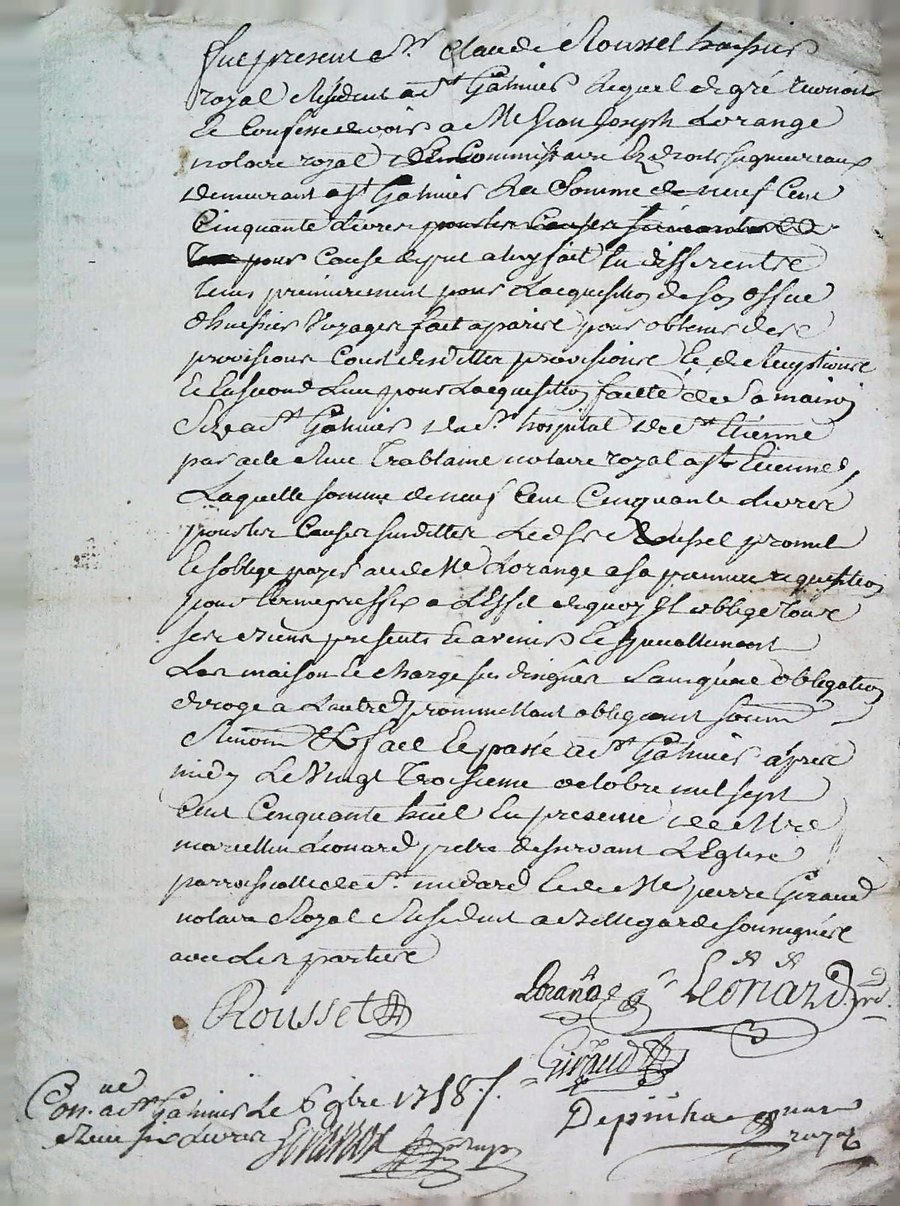 Fut present Sr Claude Rousset huissier
royal Résident a St Galmier Lequel de gré reconoit
Et Confesse devoir a Me Jean Joseph Lorange
notaire royal Commissaire Ez droits seigneuriaux
demeurant a St Galmier La Somme de neuf Cent
Cinquante Livres pour les Causes
pour Cause de pret a luy fait En differents
tems premierement pour Lacquisition de son office
dhuissier Voyages fait a paris pour obtenir des
provisions Cout desdittes provisions Et de
Et En second Lieu pour Lacquisition faitte de Sa maison
Size a St Galmier de hospital de St Etienne
par acte Reçu Trablaine notaire royal a St Etienne,
Laquelle somme de neuf Cent Cinquante Livres
pour les Causes susdittes Ledit Sr Rousset promet
Et soblige payer audit Me Lorange a sa premiere requisition
pour terme preffix a L'Effet de quoy Il oblige tous
ses Biens presents Et avenir Et speciallement
Las maison Et charge sus dingnés Sans qu'une obligation
deroge a Lautre promettant obligeant soum
Renon Et fait Et passé a St Galmier après
midy Le Vingt Troisieme octobre mil sept
Cent Cinquante huit En presence de Mre
marcellin Léonard pretre deservant LEglise
parroissialle de St medard Et de Me pierre Giraud
notaire Royal Résident a Bellegarde soussignés
avec Les parties
Rousset Lorange Léonard
Giraud
Con.ne a St Galmier Le 6 9bre 1758
Reçu six Livres
royal